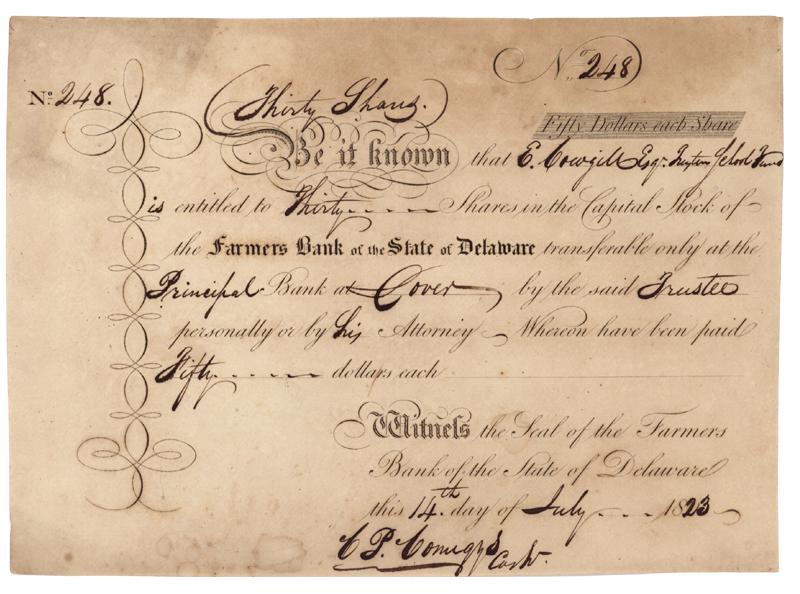 No. 248
No. 248.
Thirty Shares.
Fifty Dollars each Share
Be it known that E. Cowgill Esqr. School Fund
is entitled to Thirty Shares in the Capital Stock of
the Farmers Bank of the State of Delaware transferable only at the
Principal Bank at Dover by the said Trustee
personally or by his Attorney Whereon have been paid
Fifty dollars each
Witness the Seal of the Farmers
Bank of the State of Delaware
this 14th day of July 1823
C P. Comegys
Cash.